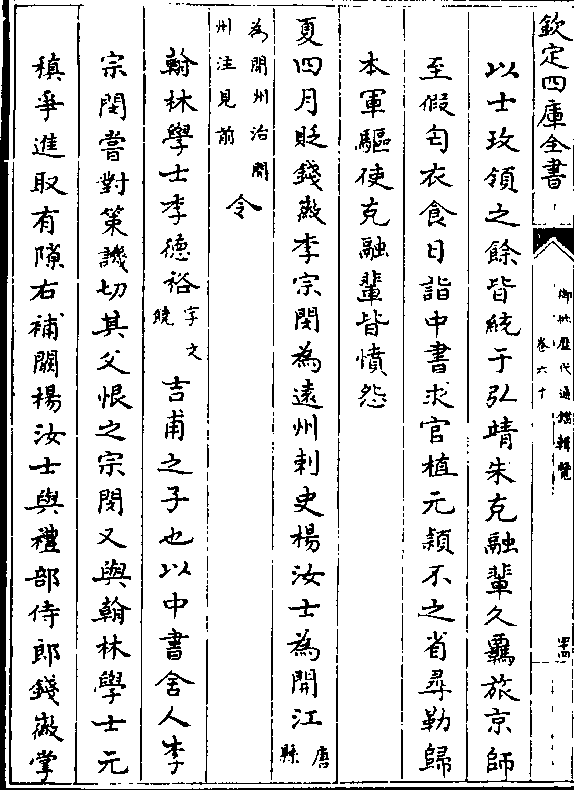 欽定四庫全書
御批歷代通鑑輯覽
卷六十
以士玫領之餘皆統于弘靖朱克融輩久羈旅京師
至假匄衣食日詣中書求官植元穎不之省尋勒歸
本軍驅使克融輩皆憤怨
夏四月貶錢徽李宗閔為遠州刺史楊汝士為開江
唐縣
為開州治開
州注見前
令
翰林學士李德裕
字文
饒
吉甫之子也以中書舍人李
宗閔嘗對策譏切其父恨之宗閔又與翰林學士元
稹爭進取有隙右補闕楊汝士與禮部侍郎錢徽掌